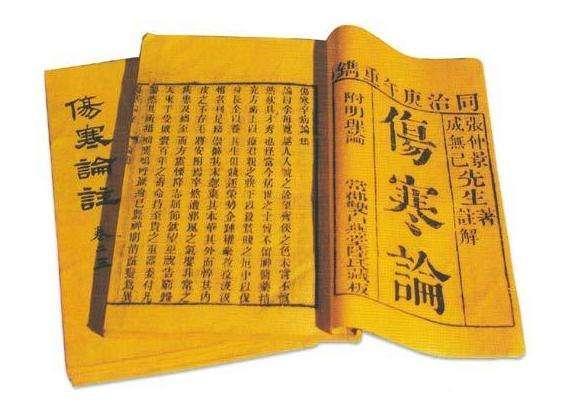 同治庚午重鐫
張仲景
成無己
先生
著
註解
傷寒論
附明理論
常郡雙白燕堂陸氏藏板
傷寒卒病論集
論曰余每覽越人入虢之診望齊侯之色未嘗不慨
然歎其才秀也怪當今居世之士曾不留神醫藥精
究方術上以療君親之疾下以救貧賤之厄中以保
身長全以養其生但競逐榮勢企踵權豪孜孜汲汲
惟名利是務崇飾其末忽棄其本華其外而悴其內
皮之不存毛將安附焉卒然遭邪風之氣嬰非常之
疾患及禍至而方震慄降志屈節欽望巫祝告窮歸
天束手受敗賫百年之壽命持至貴之重器委付凡
醫恣其所措咄嗟嗚呼厥身已斃神明消滅變為異
傷寒論註
卷三